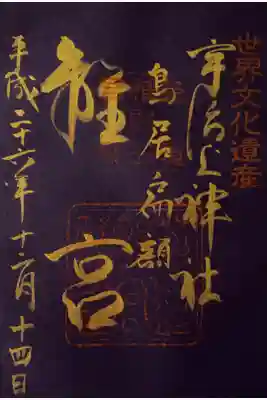 世界文化遺産
宇治上神社
鳥居扁額
離宮
平成二十六年十二月十四日